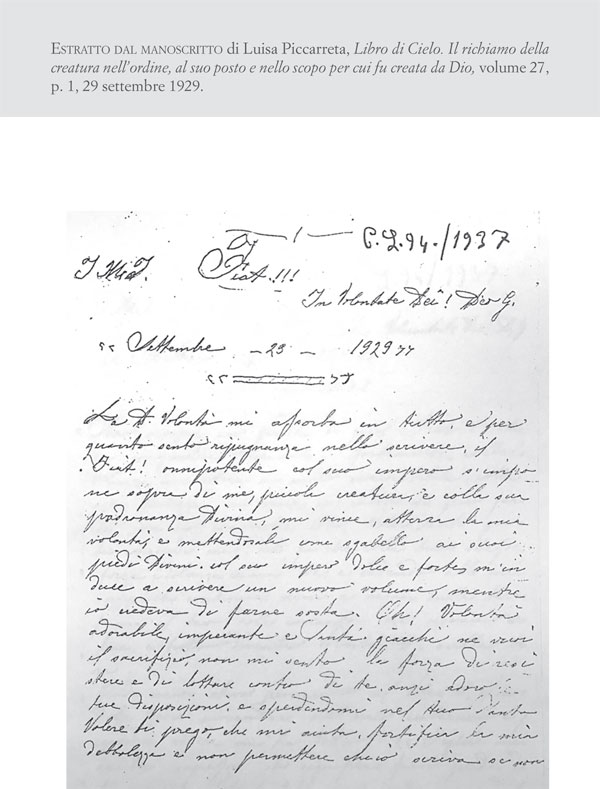 ESTRATTO DAL MANOSCRITTO di Luisa Piccarreta, Libro di Cielo. Il richiamo della
creatura nell’ordine, al suo posto e nello scopo per cui fu creata da Dio, volume 27,
p. 1, 29 settembre 1929.
1937
Fiat.!!!
In Voluntate Dei! Deo G.
Settembre - 23 - 1929
La D. Volontà mi assorba in tutto, e per
quanto sento ripugnanza nello scrivere, il
Fiat! onnipotente col suo impero s'impo
ne sopra di me, piccola creatura, e colla sua
padronanza Divina, mi vince, atterra la mia
volontà, e mettendosela come sgabello ai suoi
piedi Divini. col suo impero dolce e forte, m'in
duce a scrivere un nuovo volume, mentre
io credeva di farne sosta. Oh! Volontà
adorabile, imperante e Santa, giacchè ne vuoi
il sacrifizio, non mi sento la forza di resi
stere e di lottare contro di te, anzi adoro
tue disposizioni. e sperdendomi nel tuo Santo
Volere ti prego, che mi aiuta, fortifica la mia
debbolezza e non permettere ch'io scriva se non